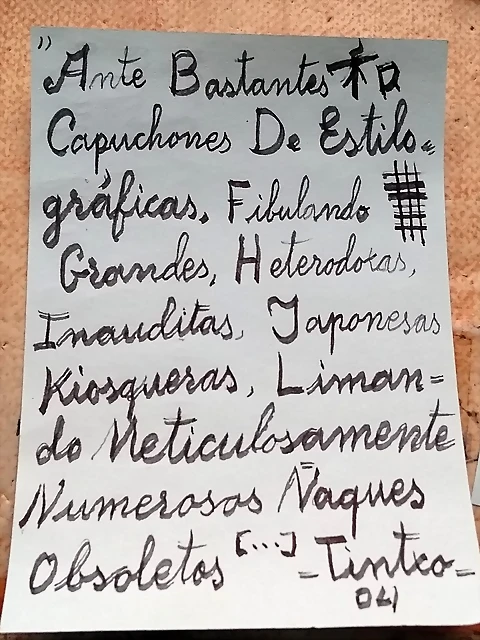 " Ante Bastantes 和
Capuchones De Estilo=
gráficas, Fibulando
Grandes, Heterodoxas,
Inauditas, Japonesas
Kiosqueras, Liman=
do Meticulosamente
Numerosos Ñaques
Obsoletos [...] =Tintxo=
04